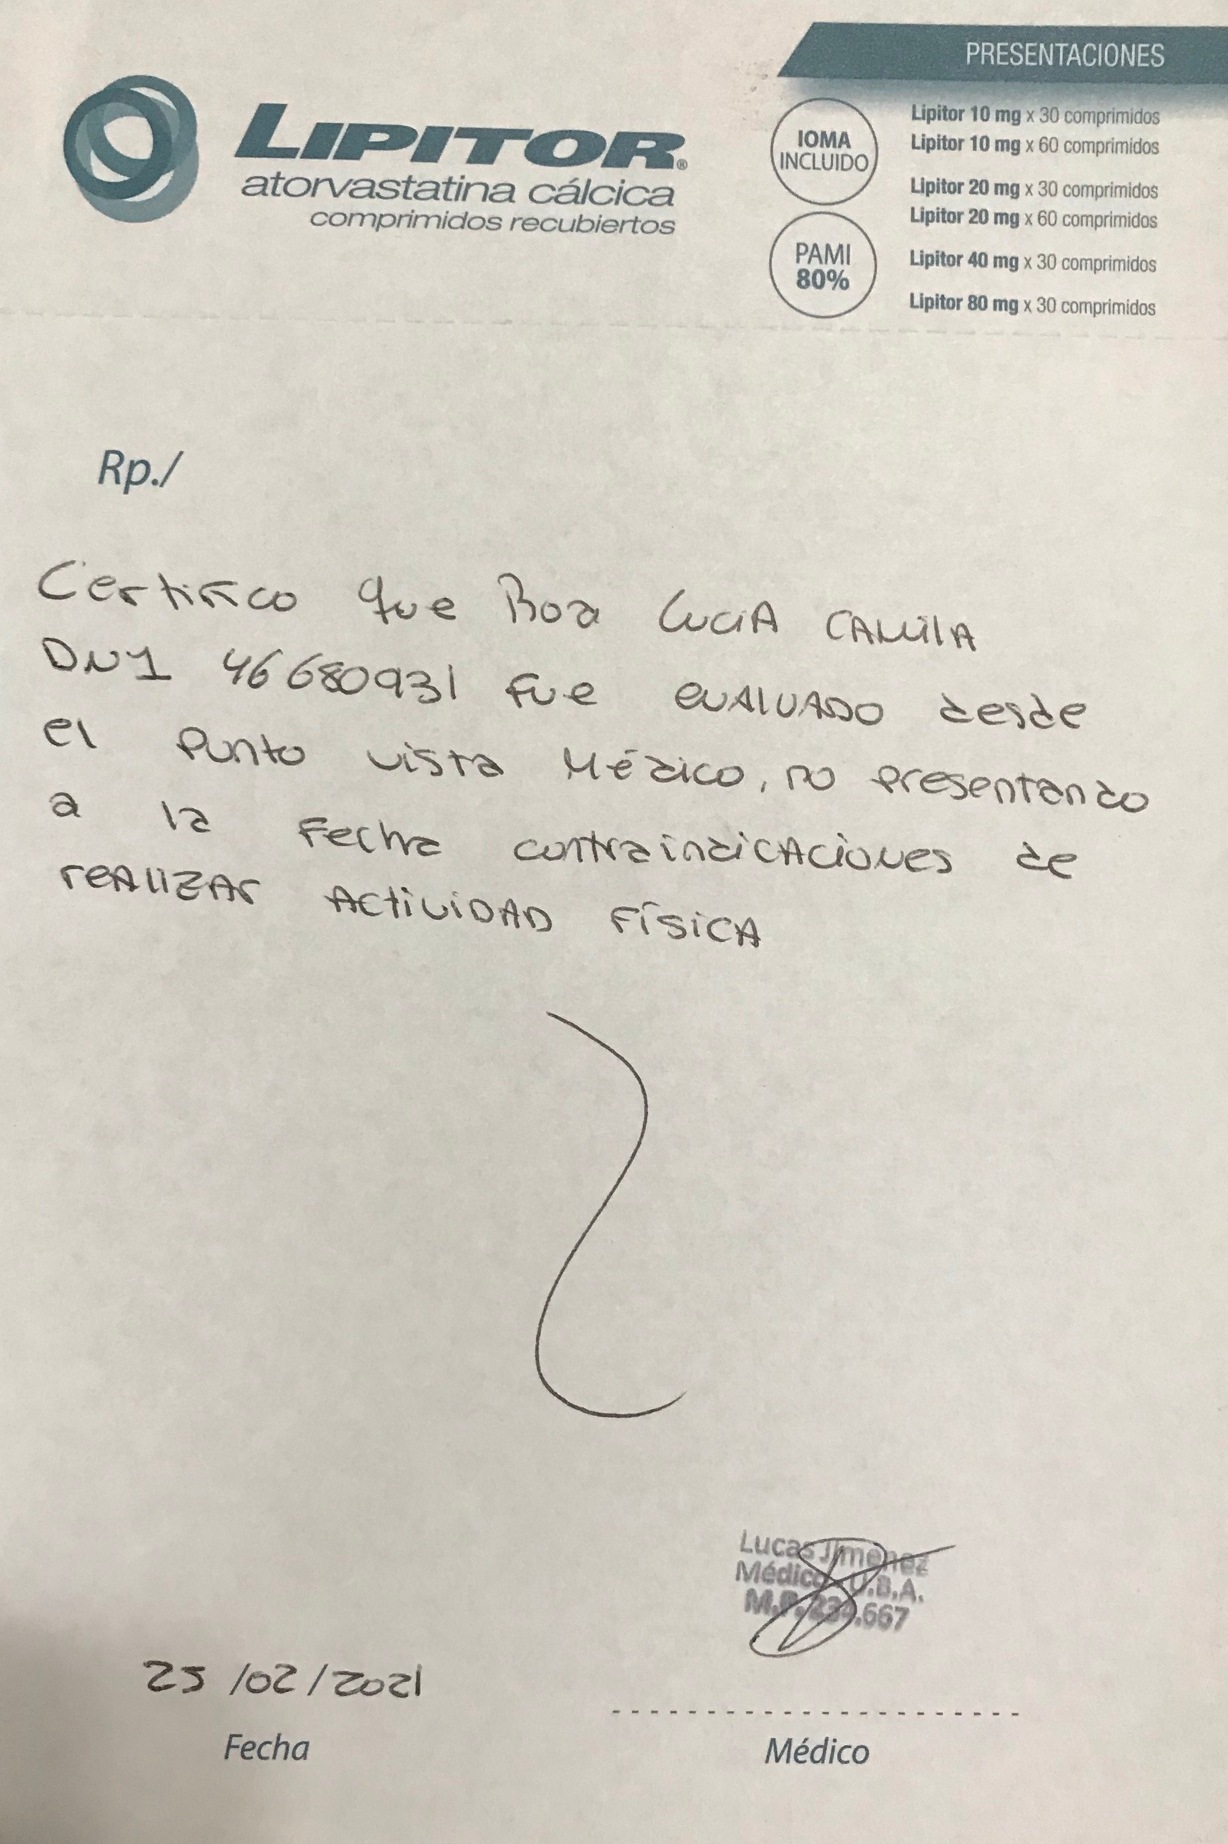 PRESENTACIONES
LIPITOR®
atorvastatina cálcica
comprimidos recubiertos
IOMA
INCLUIDO
PAMI
80%
Lipitor 10 mg x 30 comprimidos
Lipitor 10 mg x 60 comprimidos
Lipitor 20 mg x 30 comprimidos
Lipitor 20 mg x 60 comprimidos
Lipitor 40 mg x 30 comprimidos
Lipitor 80 mg x 30 comprimidos
Rp./
Certifico que Boa Lucia CAMILA
DNI 46680931 fue evALUADO desde
el Punto vista Médico, no presentando
a la Fecha contraindicAciones de
reALIZAr ActiviDAD FísicA
Lucas Jimenez
Médico U.B.A.
M.P. 234.667
25/02/2021
Fecha
Médico